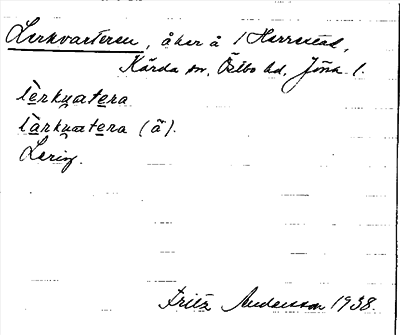 Lerkvarteren, åker å 1 Herrestad,
Kärda sn, Östbo hd, Jöns. l.
lèrkvatera
làrkvatera (ä).
Lerig.
Fritz Andersson 1938